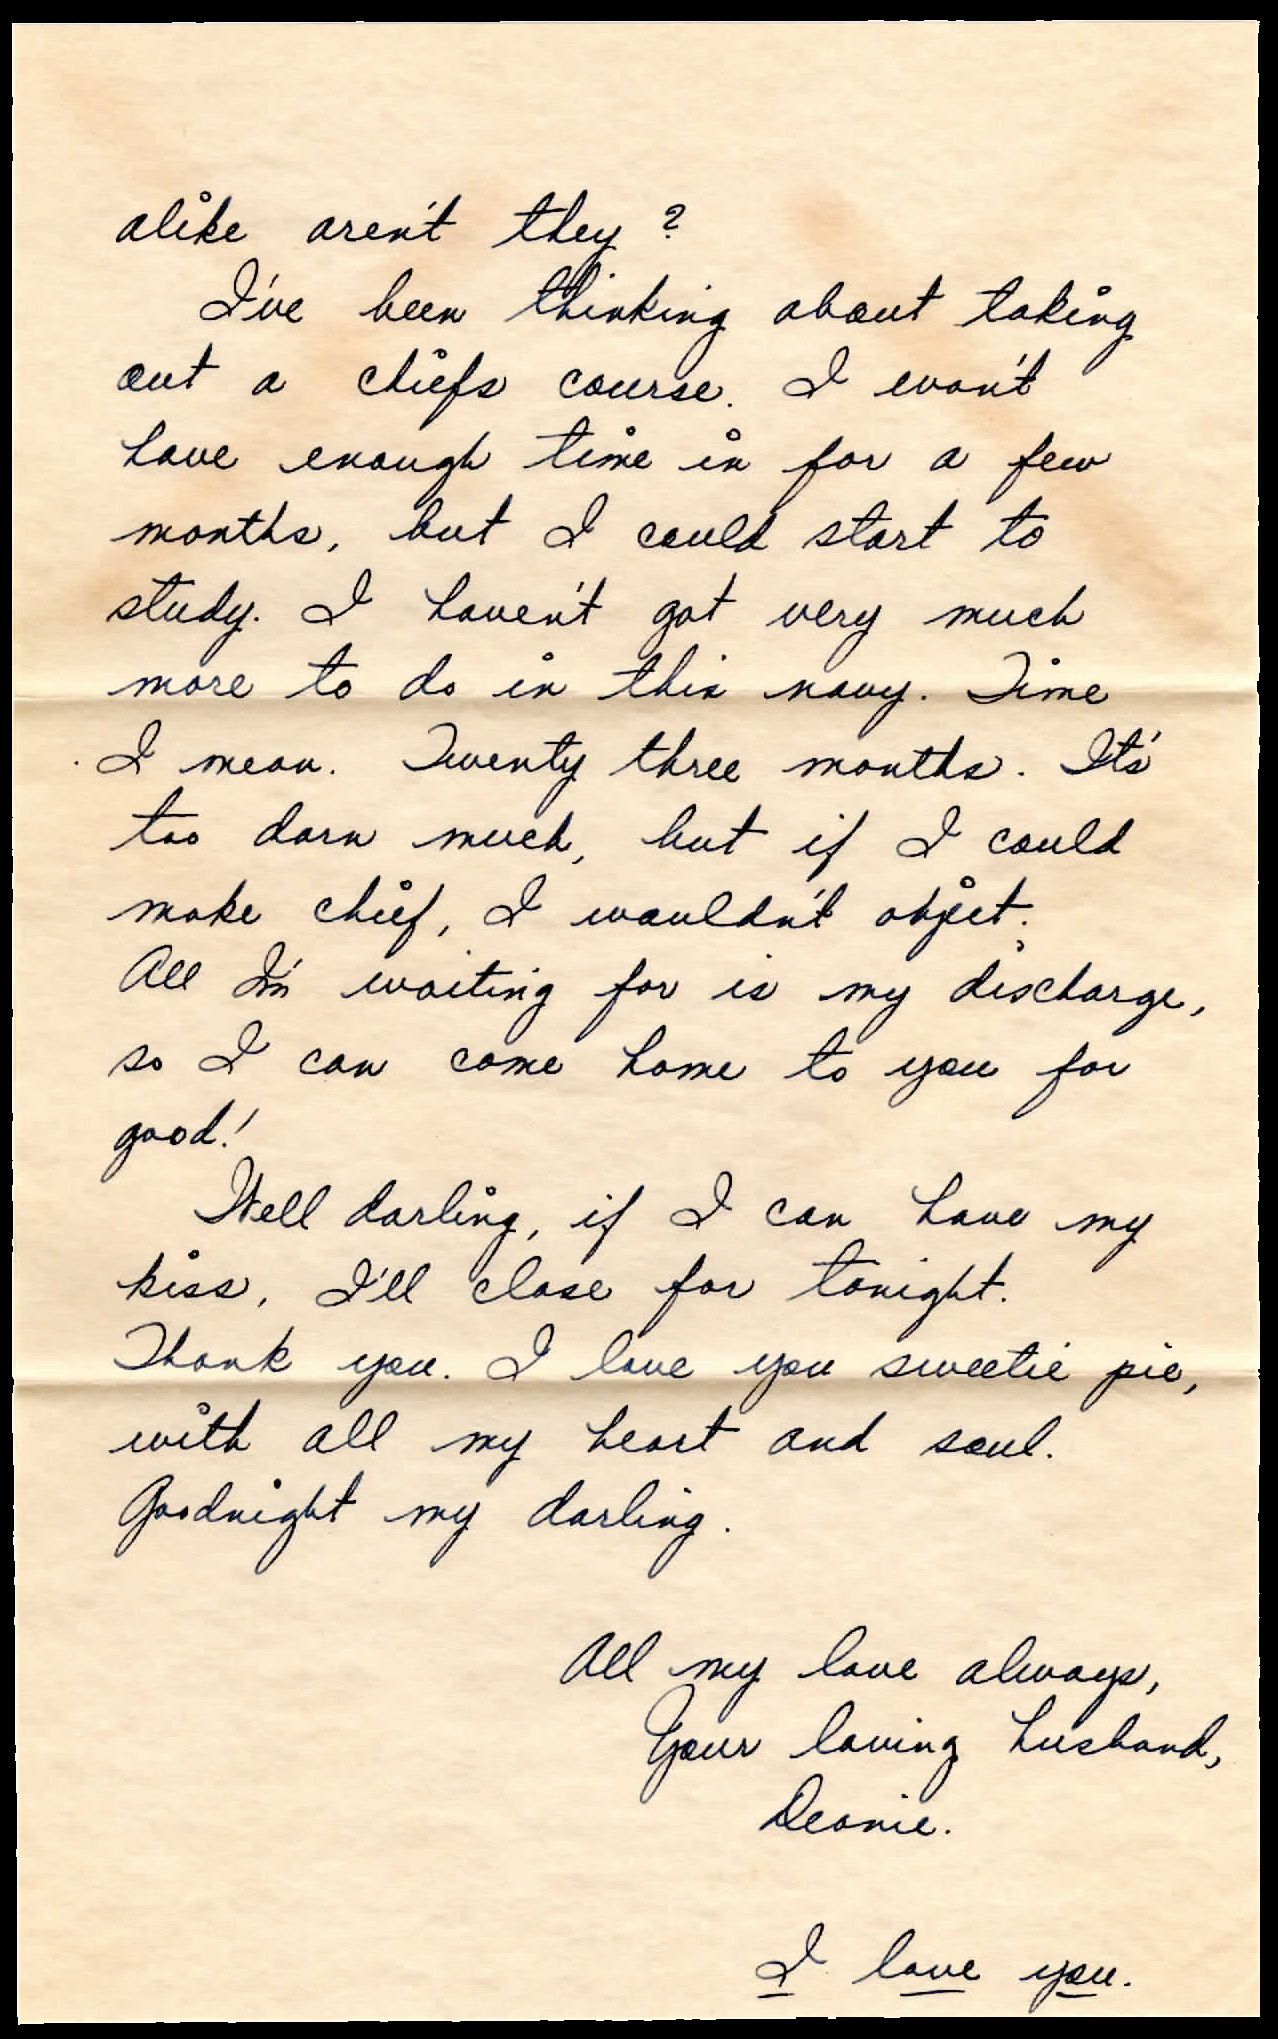 alike aren't they?
I've been thinking about taking
out a chiefs course. I won't
have enough time in for a few
months, but I could start to
study. I haven't got very much
more to do in this navy. Time
I mean. Twenty three months. It's
too darn much, but if I could
make chief, I wouldn't object.
All I'm waiting for is my discharge,
so I can come home to you for
good!
Well darling, if I can have my
kiss, I'll close for tonight.
Thank you. I love you sweetie pie,
with all my heart and soul.
Goodnight my darling.
All my love always,
Your loving husband,
Deanie.
I love you.